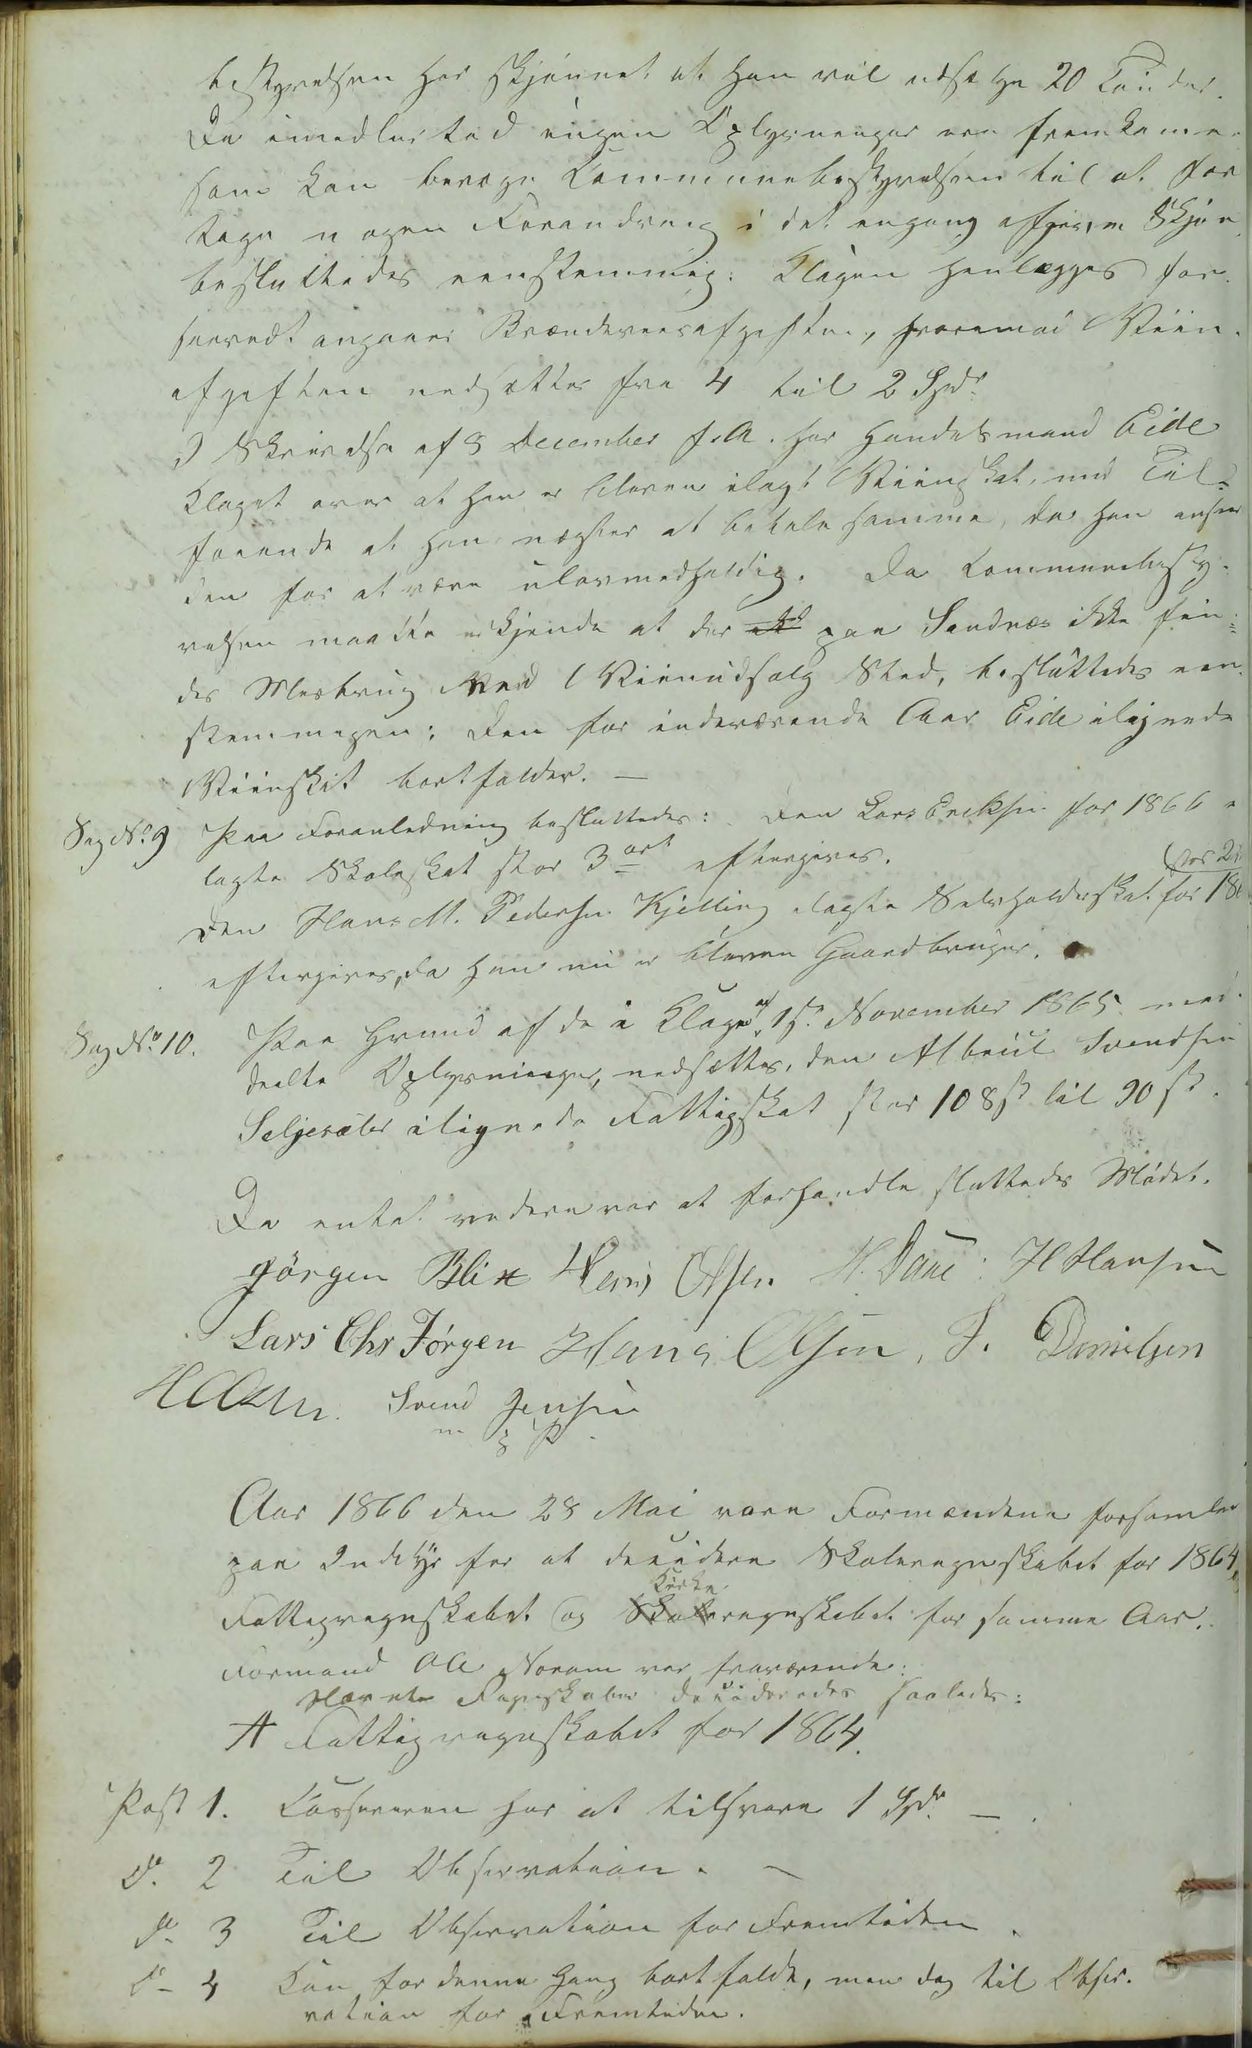 bestyrelsen har skjønnet at han vil udsælge 20 Tønder.
Da imedlertid ingen Oplysninger ere fremkomne
som kan bevæge Communebestyrelsen til at for
tage nogen Forandring i det engang afgivne Skjøn
besluttedes eenstemmig: Klagen henlægges for
saavidt angaaer Brændeviinsafgiften, hvorimod Viin-
afgiften nedsættes fra 4 til 2 Spd.
I Skrivelse af 8 December f. A. har Handelsmand Eide
klaget over at han er bleven ilagt Viinskat, med Til-
føiende at han nægter at betale samme, da han anseer
den for at være ulovmedholdig. Da Communebesty-
relsen maatte erkjende at der paa Sandnæs ikke fin-
des Mærkning Ved Viinudsalg Sted, besluttedes een-
stemmigen: Den for indeværende Aar Eide ilignede
Viinskat bortfalder. —
Sag No 9 Paa Foranledning besluttedes: Den Lars Eriksen for 1866 i
lagte Skoleskat stor 3 ort eftergives.
Den Hans M. Pedersen Kjelling ilagte Selvholdsskat for 186
eftergives, da han nu er bleven Gaardbruger.
Sag No 10. Paa Grund af de i Klage af 15 November 1865 med-
deelte Oplysninger, nedsættes, den Albrigt Svendsen
Seljesæter ilignede Fattigskat stor 108 ß til 90 ß.
Da intet videre var at forhandle sluttedes Mødet.
Jörgen Blix Hans Olsen H. Dahl H Hansen
Lars Chr Jörgen Hans Olsen, J. Danielsen
Svend Jensen
m p P.
Aar 1866 den 28 Mai vare Formændene forsamlet
paa Indyr for at decidere Skoleregnskabet for 1864,
Fattigregnskabet og Kirke regnskabet for samme Aar.
Formand Ole Noram var fraværende.
Nævnte Regnskaber decideredes saaledes:
A Fattigregnskabet for 1864.
Post 1. Casserer en har at tilsvare 1 Spd. —
do. 2 Til Observation. —
do - 3 Til Observation for Fremtiden.
do - 4 Kan for denne Gang bortfalde, men dog til Obser-
vation for Fremtiden.